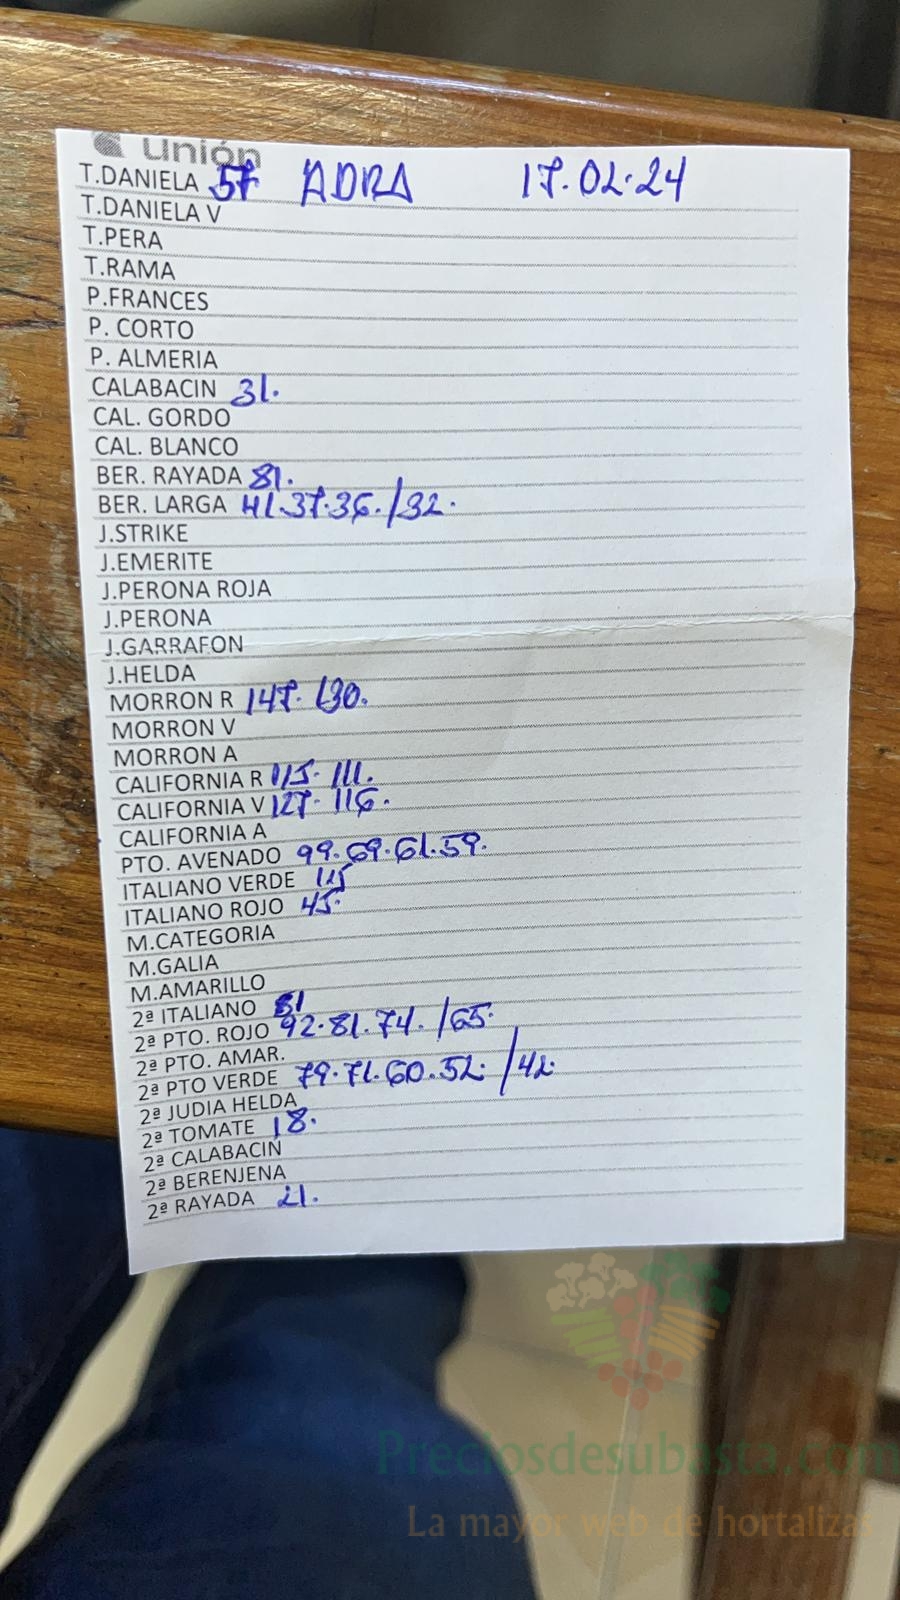 unión
T.DANIELA 57 ADRA 17.02.24
T.DANIELA V
T.PERA
T.RAMA
P.FRANCES
P. CORTO
P. ALMERIA
CALABACIN 31.
CAL. GORDO
CAL. BLANCO
BER. RAYADA 81.
BER. LARGA 41.37.36./32.
J.STRIKE
J.EMERITE
J.PERONA ROJA
J.PERONA
J.GARRAFON
J.HELDA
MORRON R 147. 130.
MORRON V
MORRON A
CALIFORNIA R 115. 111.
CALIFORNIA V 127. 116.
CALIFORNIA A
PTO. AVENADO 99.69.61.59.
ITALIANO VERDE 115
ITALIANO ROJO 45.
M.CATEGORIA
M.GALIA
M.AMARILLO
2ª ITALIANO
2ª PTO. ROJO 92.81.74. /65.
2ª PTO. AMAR.
2ª PTO VERDE 79.71.60.52. /42.
2ª JUDIA HELDA
2ª TOMATE 18.
2ª CALABACIN
2ª BERENJENA
2ª RAYADA 21.
Preciosdesubasta.com
La mayor web de hortalizas